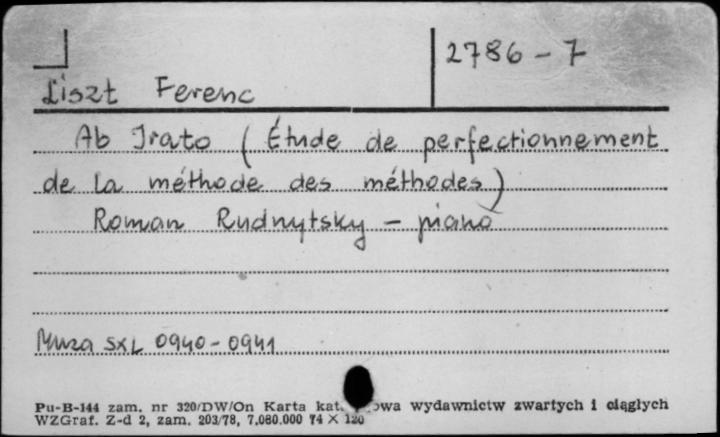 2786-7
Liszt Ferenc
Ab Irato (Étude de perfectionnement
de la méthode des méthodes)
Roman Rudnytsky - piano
Muza SXL 0940-0941
Pu-B-144 zam. nr 320/DW/On Karta kat. owa wydawnictw zwartych i ciągłych
WZGraf. Z-d 2, zam. 203/78, 7.080.000 74 X 120